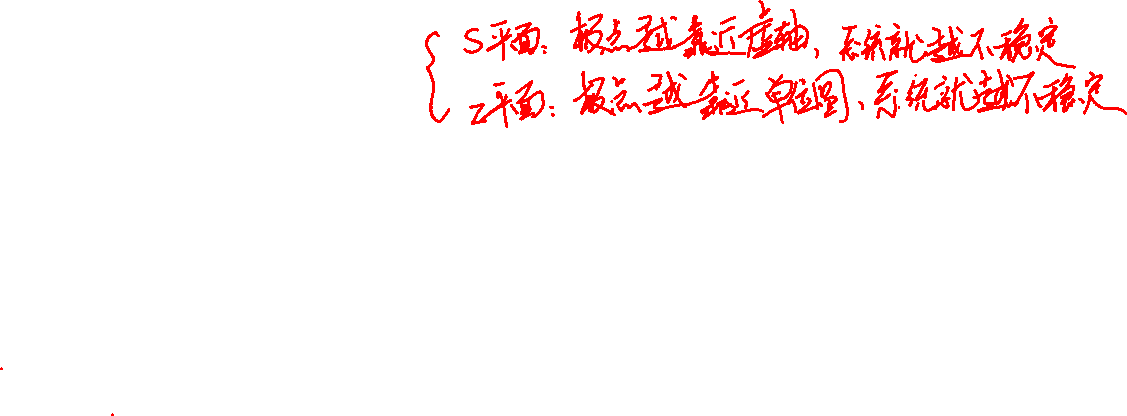 S平面：极点越靠近虚轴，系统就越不稳定
Z平面：极点越靠近单位圆，系统就越不稳定